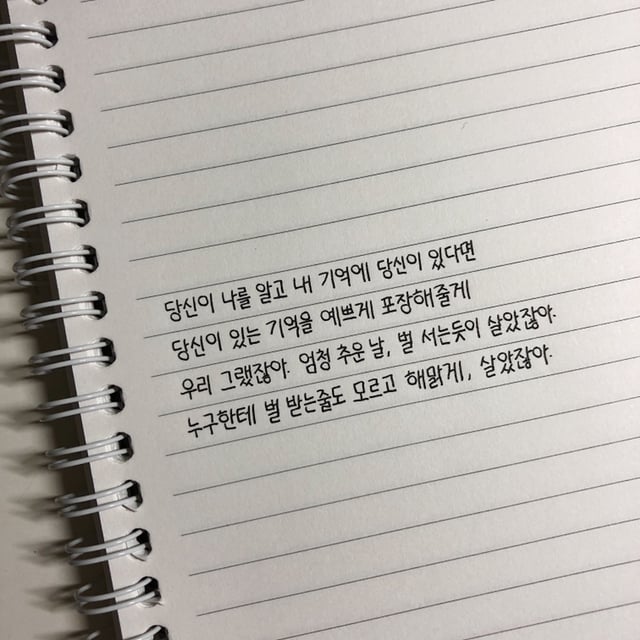 당신이 나를 알고 내 기억에 당신이 있다면
당신이 있는 기억을 예쁘게 포장해줄게
우리 그랬잖아. 엄청 추운 날, 벌 서는듯이 살았잖아.
누구한테 벌 받는줄도 모르고 해맑게, 살았잖아.